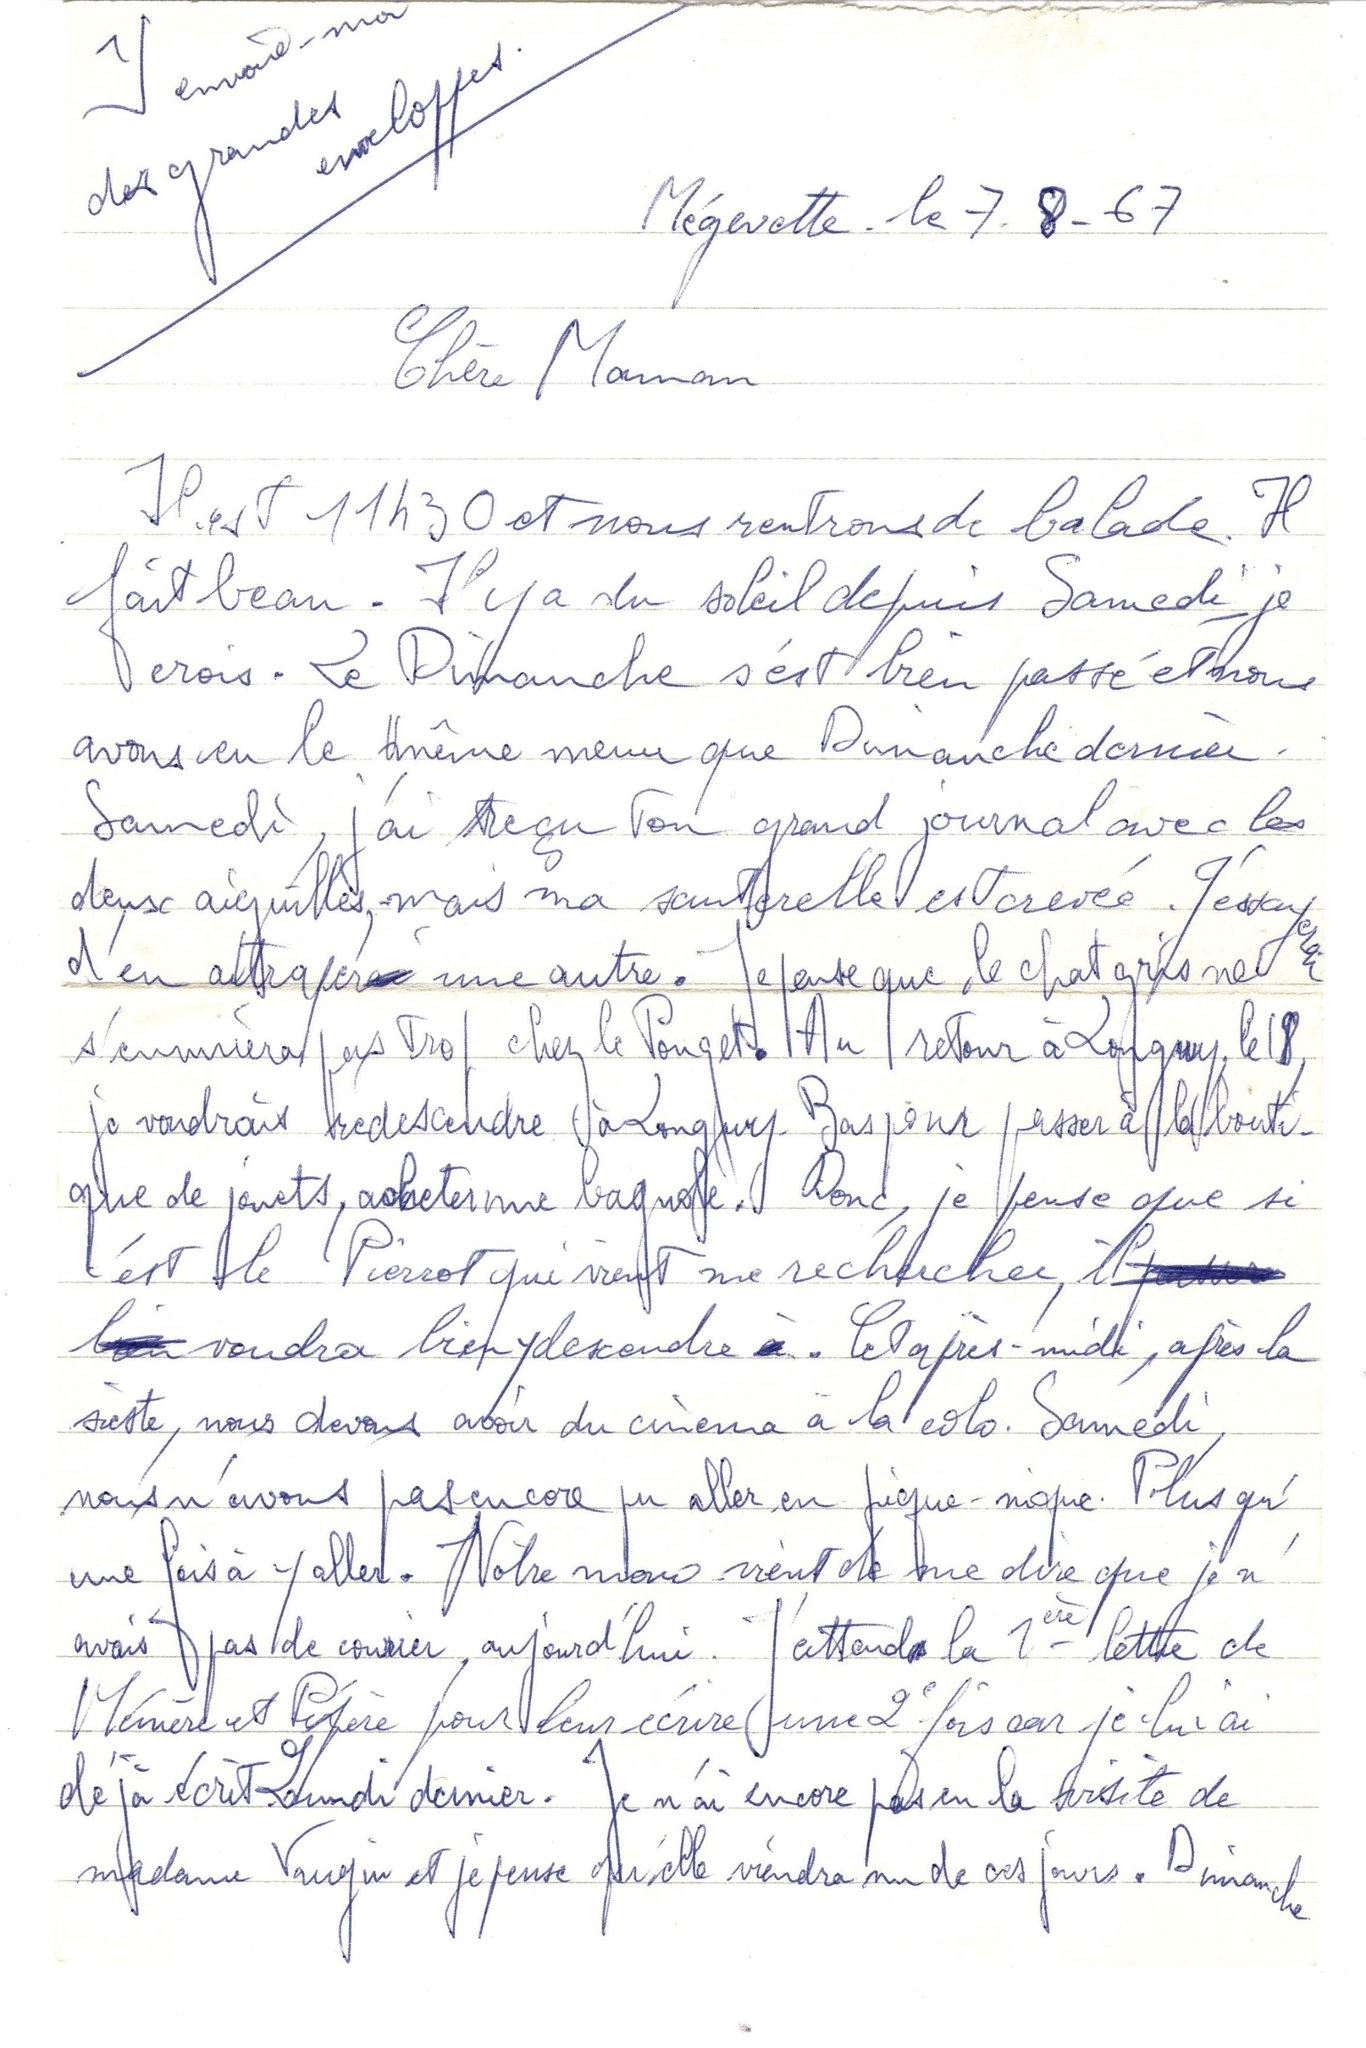 envoie-moi
des grandes
enveloppes.
Mégevette. le 7. 8-67
Chère Maman
Il est 11h30 et nous rentrons de balade. Il
fait beau. Il y a du soleil depuis Samedi je
crois. Le Dimanche s'est bien passé et nous
avons eu le même menu que Dimanche dernier.
Samedi, j'ai reçu ton grand journal avec les
deux aiguilles, mais ma sauterelle est crevée. J'éssayerai
d'en attraper une autre. Je pense que le chat gris ne
s'ennuiera pas trop chez le Pouget. Au retour à Longwy, le 18,
je voudrais redescendre à Longwy-Bas pour passer à la bouti-
que de jouets, acheter une bagnole. Donc, je pense que si
c'est le Pierrot qui vient me rechercher, il
voudra bien y descendre. Cet après-midi, après la
sieste, nous devons avoir du cinema à la colo. Samedi,
nous n'avons pas encore pu aller en pique-nique. Plus qu'
une fois à y aller. Notre mono vient de me dire que je n'
avais pas de courrier, aujourd'hui. J'attends la 1ère lettre de
Mémère et Pépère pour leur écrire une 2e fois car je lui ai
déjà écrit Lundi dernier. Je n'ai encore pas eu la visite de
madame Vaugin et je pense qu'elle viendra un de ces jours. Dimanche